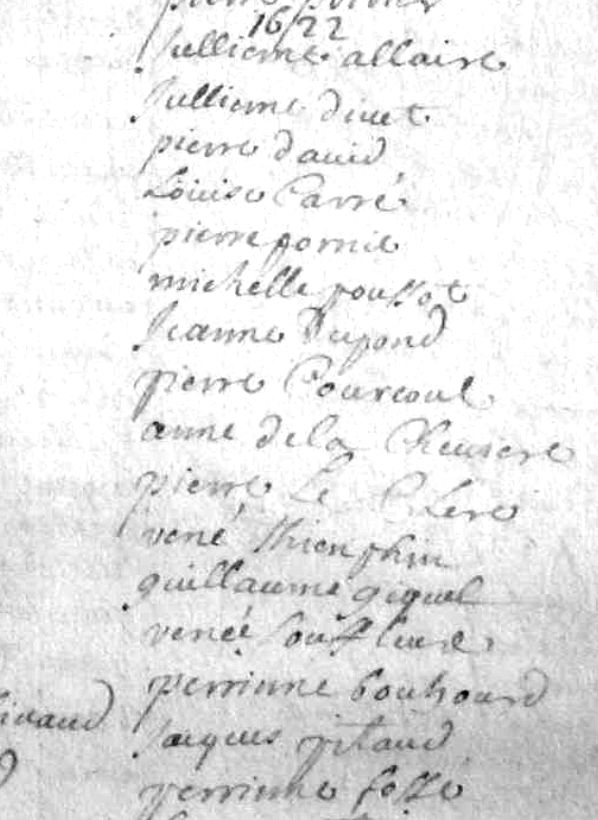 pierre
1622
Jullienne allaire
Jullienne divet
pierre david
Louise Carré
pierre pornie
michelle poussot
Jeanne Dupond
pierre Courcoul
anne de la
pierre Le Clerc
rené
guillaume giquel
renée Souffleue
perrinne bouhourd
Jacques pitaud
perrinne fossé